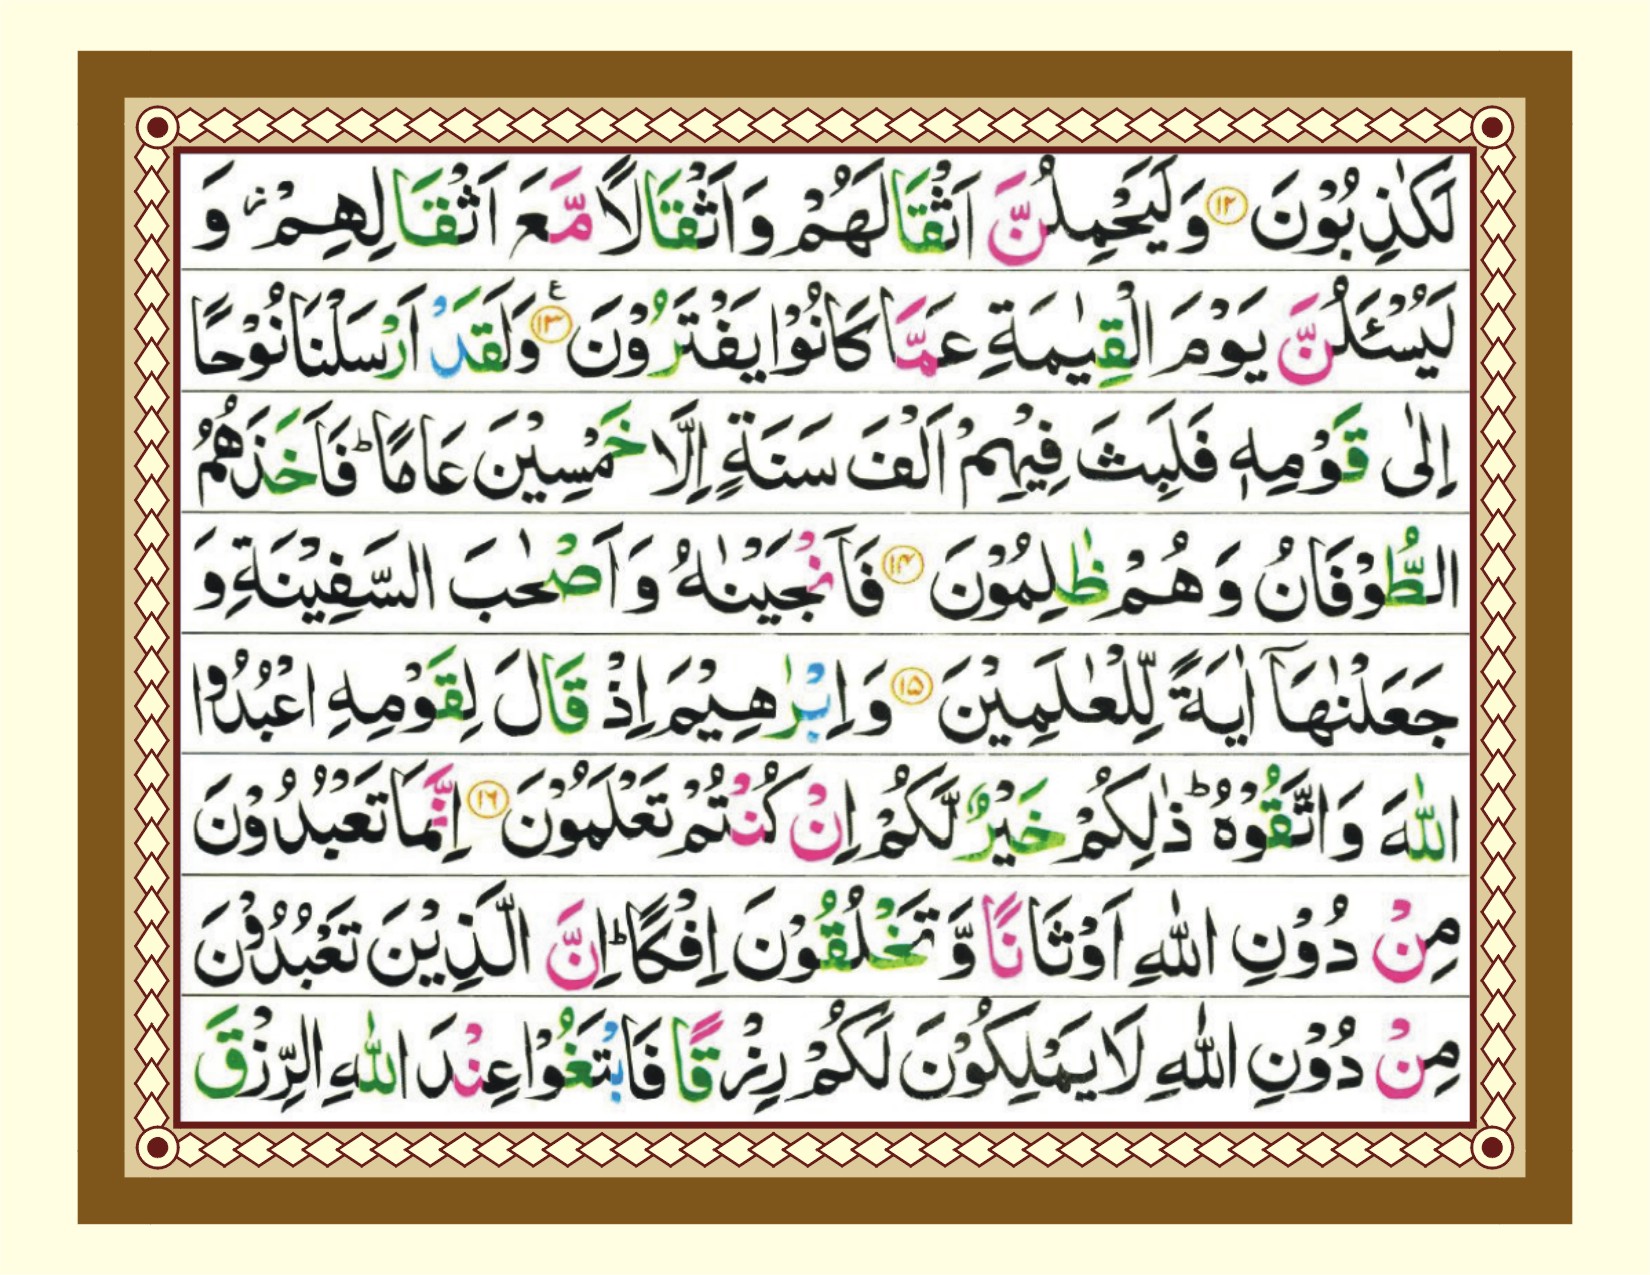 لَكٰذِبُوْنَ ﴿۱۲﴾ وَلَيَحْمِلُنَّ اَثْقَالَهُمْ وَاَثْقَالًا مَّعَ اَثْقَالِهِمْ ز وَ
لَيُسْـَٔلُنَّ يَوْمَ الْقِيٰمَةِ عَمَّا كَانُوْا يَفْتَرُوْنَ ﴿۱۳﴾ ع وَلَقَدْ اَرْسَلْنَا نُوْحًا
اِلٰى قَوْمِهٖ فَلَبِثَ فِيْهِمْ اَلْفَ سَنَةٍ اِلَّا خَمْسِيْنَ عَامًا ؕ فَاَخَذَهُمُ
الطُّوْفَانُ وَهُمْ ظٰلِمُوْنَ ﴿۱۴﴾ فَاَنْجَيْنٰهُ وَاَصْحٰبَ السَّفِيْنَةِ وَ
جَعَلْنٰهَاۤ اٰيَةً لِّلْعٰلَمِيْنَ ﴿۱۵﴾ وَاِبْرٰهِيْمَ اِذْ قَالَ لِقَوْمِهِ اعْبُدُوا
اللّٰهَ وَاتَّقُوْهُ ؕ ذٰلِكُمْ خَيْرٌ لَّكُمْ اِنْ كُنْتُمْ تَعْلَمُوْنَ ﴿۱۶﴾ اِنَّمَا تَعْبُدُوْنَ
مِنْ دُوْنِ اللّٰهِ اَوْثَانًا وَّتَخْلُقُوْنَ اِفْكًا ؕ اِنَّ الَّذِيْنَ تَعْبُدُوْنَ
مِنْ دُوْنِ اللّٰهِ لَا يَمْلِكُوْنَ لَكُمْ رِزْقًا فَابْتَغُوْا عِنْدَ اللّٰهِ الرِّزْقَ